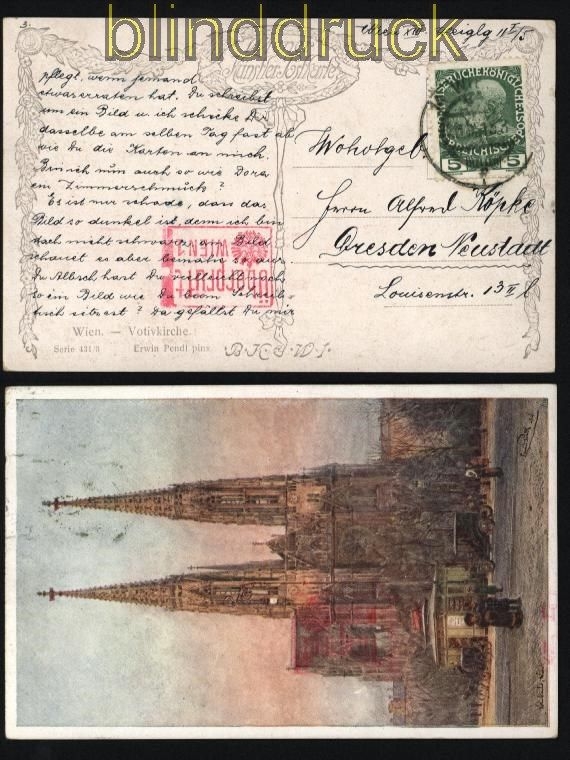 blinddruck
3.
Wien XIII
Künstler-Postkarte
pflegt, wenn jemand
etwas erraten hat. Du schreibst
um ein Bild u. ich schicke Dir
dasselbe am selben Tag fast ab
wie Du die Karten an mich.
Bin ich nun auch so wie Dora
ein Zimmerschmuck?
Es ist nur schade, dass das
Bild so dunkel ist, denn ich bin
doch nicht schwarz, am Bild
schauet es aber beinahe so aus.
Du Albsch hast Du vielleicht noch
so ein Bild wie Du beim Schreib-
tisch sitzest? Da gefällst Du mir
KAISERLICHE KÖNIGLICHE ÖSTERREICHISCHE
5 5
Wohlgeb
Herrn Alfred Köpke
Dresden Neustadt
Louisenstr. 13 II l
ÜBERPRÜFT
WIEN
Wien. — Votivkirche.
Serie 431/3 Erwin Pendl pinx.
B.K.W.I.